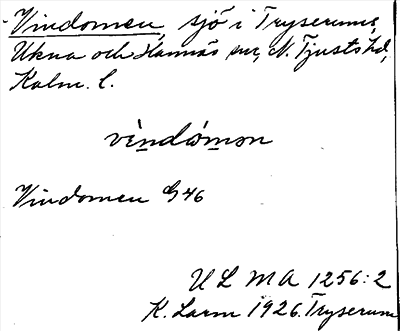 Vindomen, sjö i Tryserums,
Ukna och Hannäs snr, N. Tjusts hd,
Kalm. l.
vìndὼmən
Vindomen G 46
U L M A 1256:2
K. Larm 1926. Tryserum